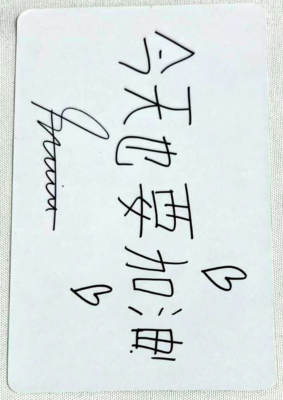 今天也要加油